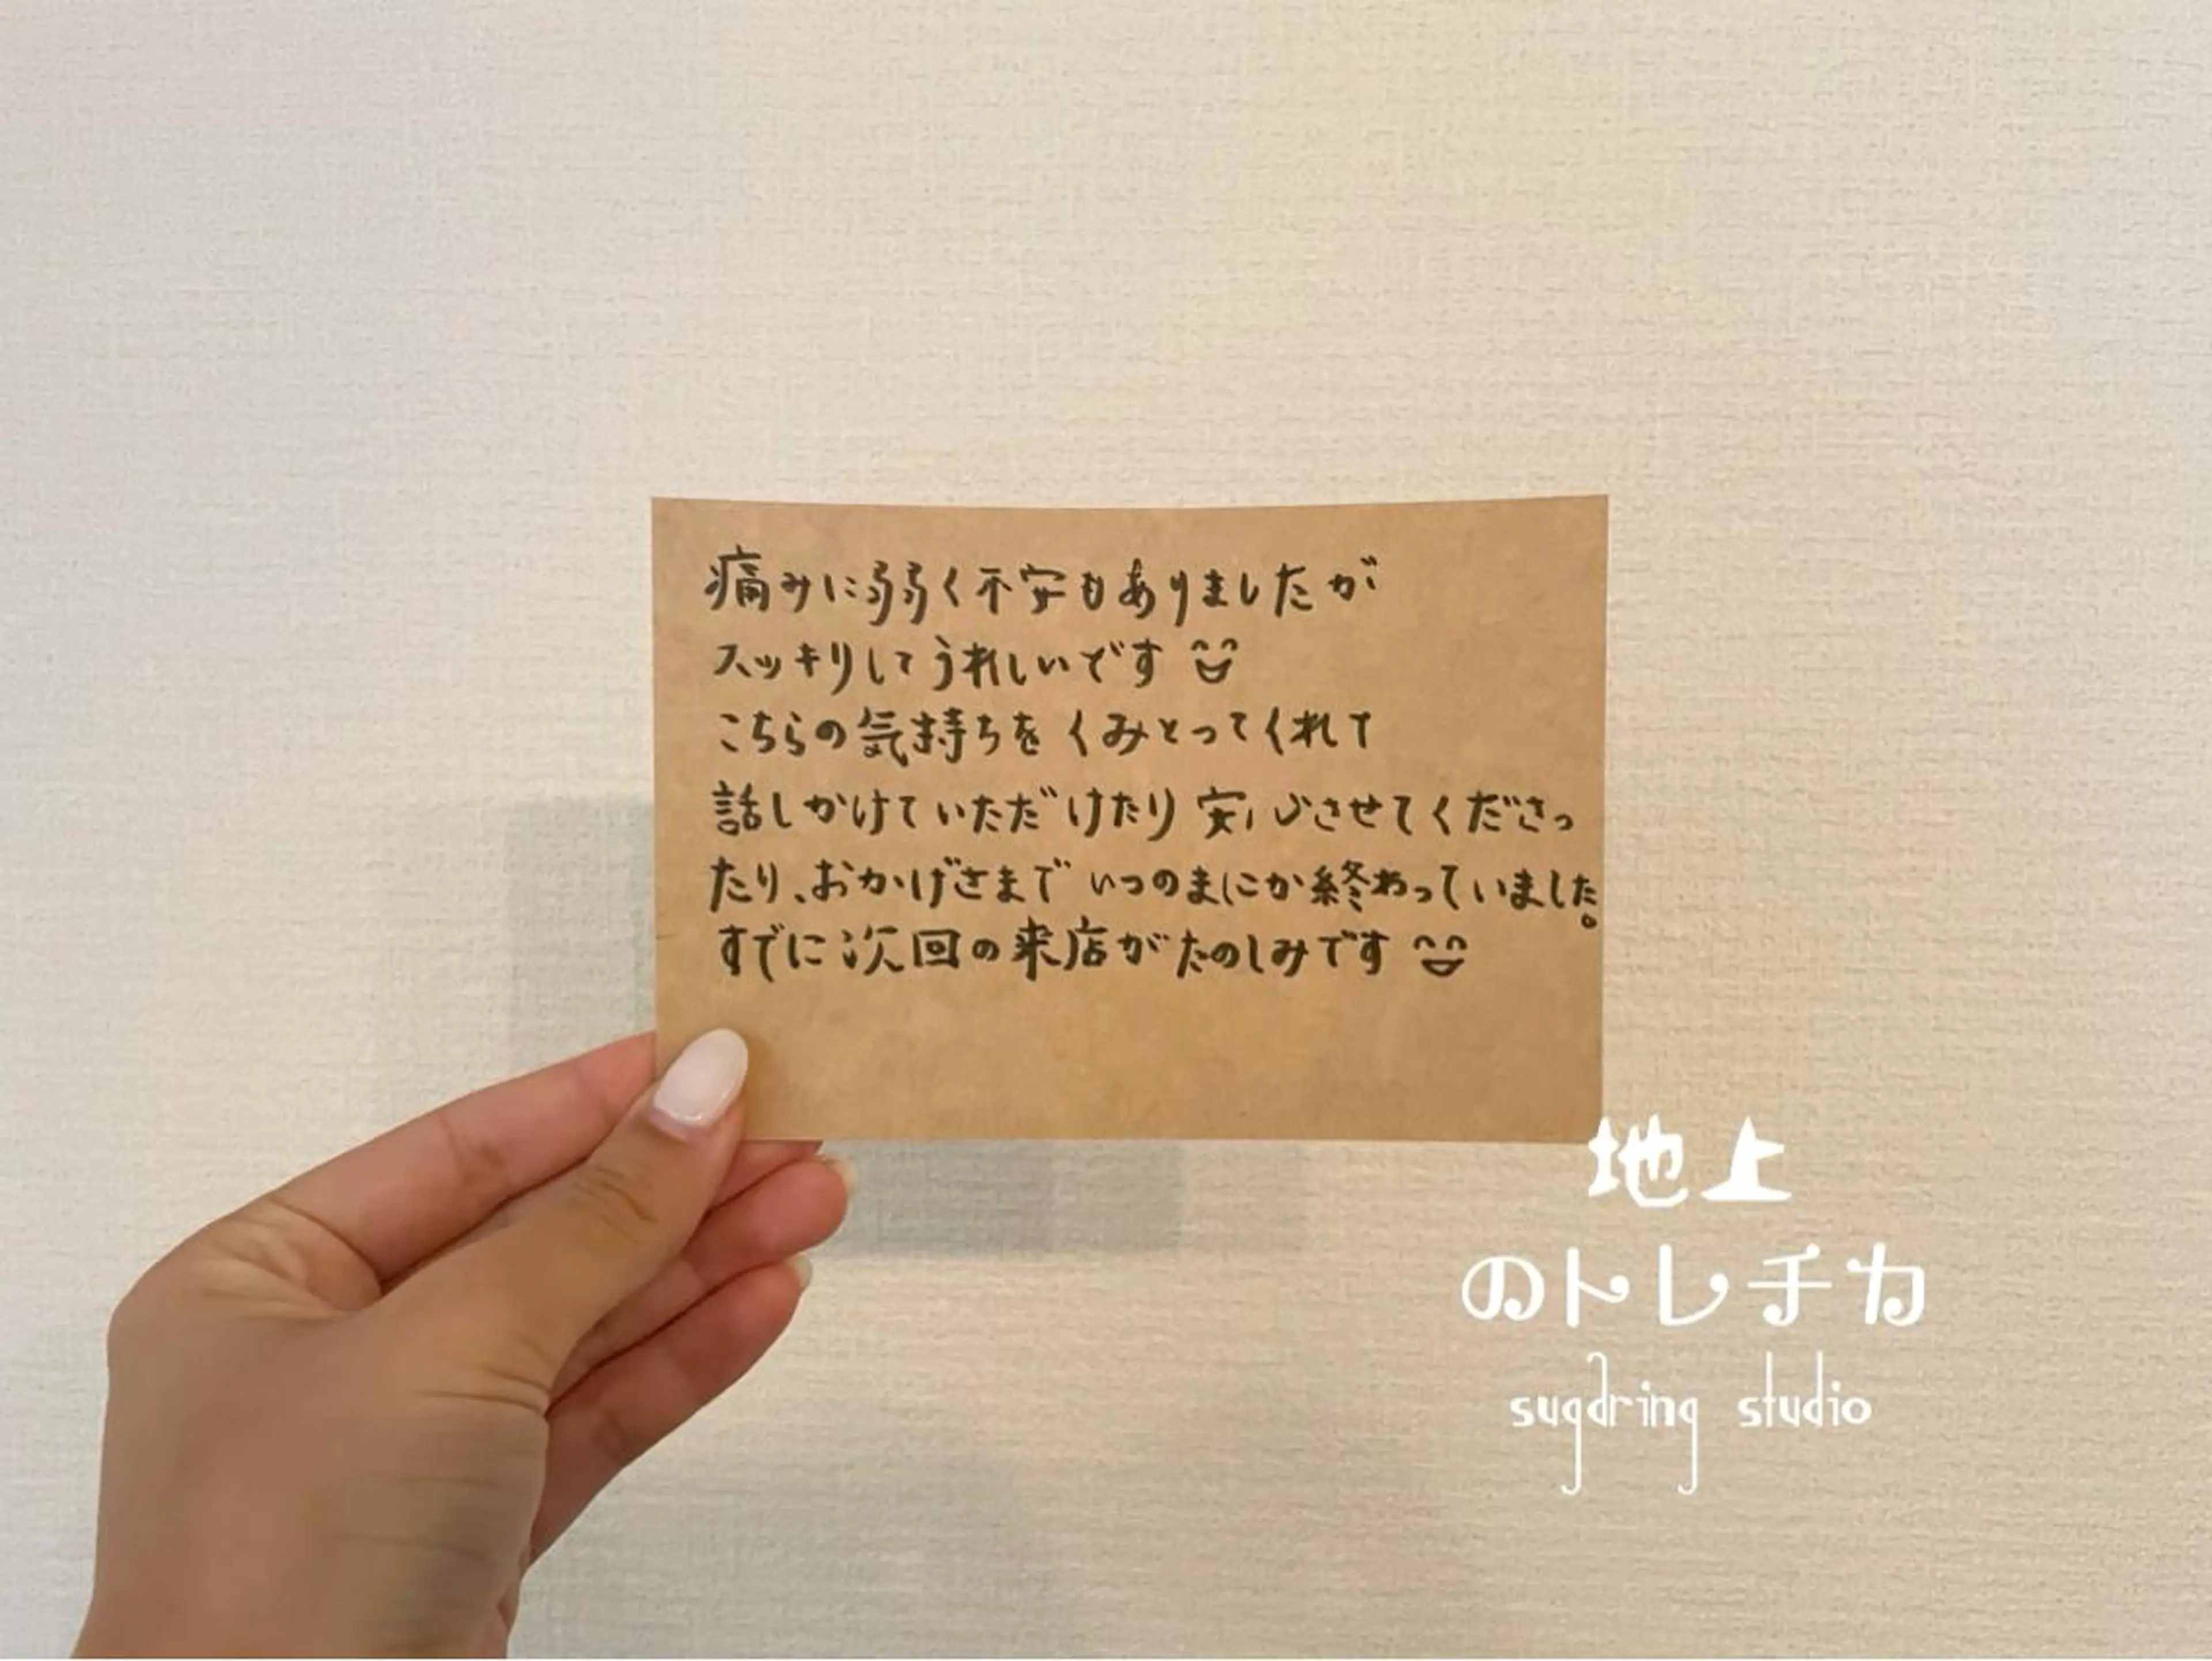 痛みに弱く不安もありましたが
スッキリしてうれしいです
こちらの気持ちをくみとってくれて
話しかけていただけたり安心させてくださっ
たり、おかげさまでいつのまにか終わっていました。
すでに次回の来店がたのしみです
地上
のトレチカ
sugdring studio